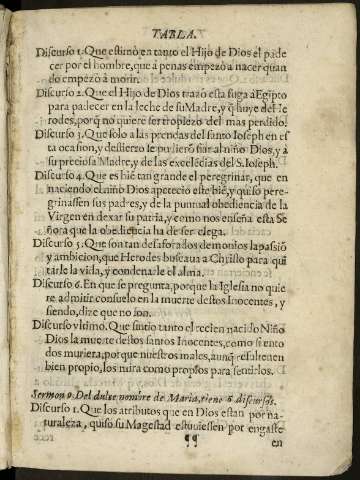 TABLA.
Discurso 1. Que estimò en tanto el Hijo de Dios el pade
cer por el hombre, que a penas empezò a nacer quan
do empezò à morir.
Discurso 2. Que el Hijo de Dios trazò esta fuga a Egipto
para padecer en la leche de su Madre, y q̃ huye del He
rodes, porq̃ no quiere ser tropiezo del mas perdido.
Discurso 3. Que solo a las prendas del santo Ioseph en es
ta ocasion, y destierro le pusierõ fiar al niño Dios, y a
su preciosa Madre, y de las excelẽcias del S. Ioseph.
Discurso 4. Que es biẽ tan grande el peregrinar, que en
naciendo el niño Dios apetecio este biẽ, y quiso pere-
grinassen sus padres, y de la puntual obediencia de la
Virgen en dexar su patria, y como nos enseña esta Se
ñora que la obediencia ha de ser ciega.
Discurso 5. Que son tan desaforados demonios la passiõ
y ambicion, que Herodes buscaua a Christo para qui
tarle la vida, y condenarle el alma.
Discurso 6. En que se pregunta, porque la Iglesia no quie
re admitir consuelo en la muerte destos Inocentes, y
siendo, dize que no son.
Discurso vltimo. Que sintio tanto el recien nacido Niño
Dios la muerte destos santos Inocentes, como si ento
dos muriera, porque nuestros males, aunq̃ resulten en
bien propio, los mira como propios para sentirlos.
Sermon 9. Del dulce nombre de Maria, tiene 6 discursos.
Discurso 1. Que los atributos que en Dios estan por na-
turaleza, quiso su Magestad estuuiessen por engaste
¶¶ en